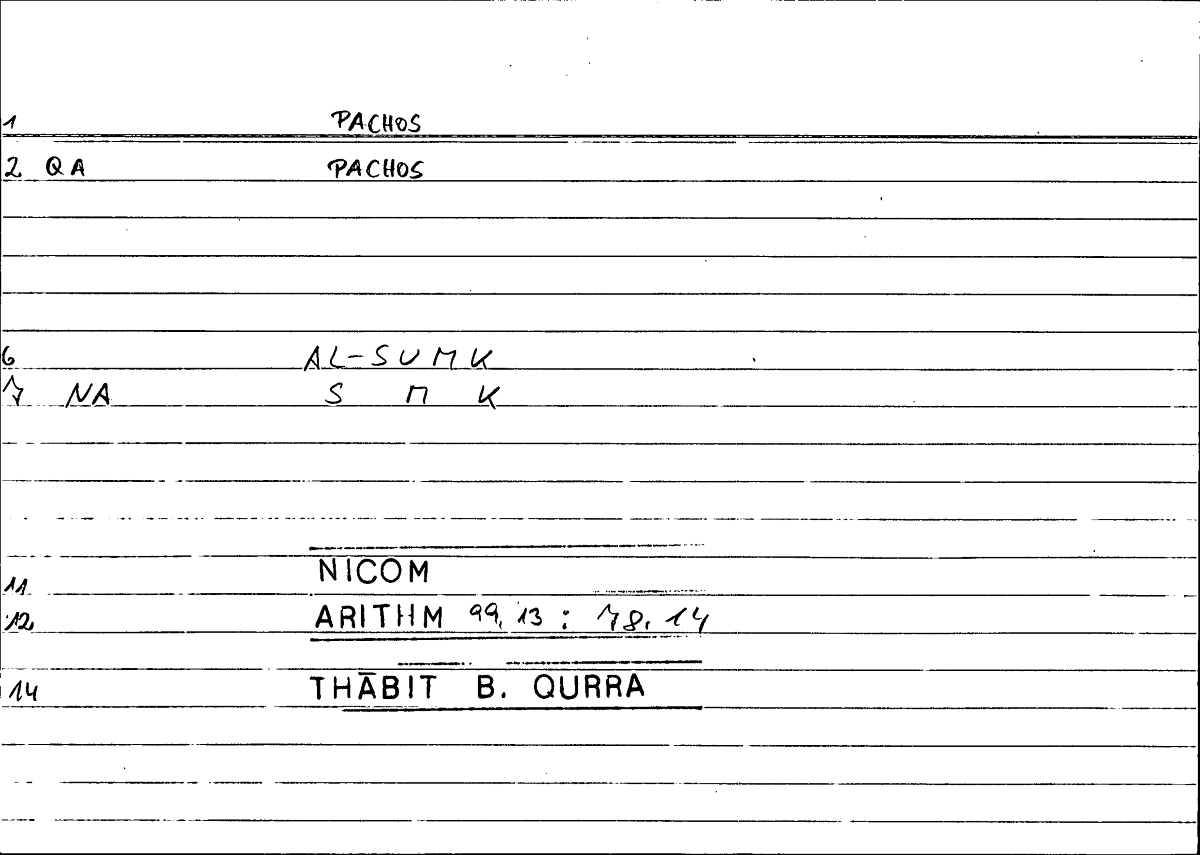 1 PACHOS
2 QA PACHOS
6 AL-SUMK
7 NA S M K
11 NICOM
12 ARITHM 99,13 : 78,14
14 THĀBIT B. QURRA